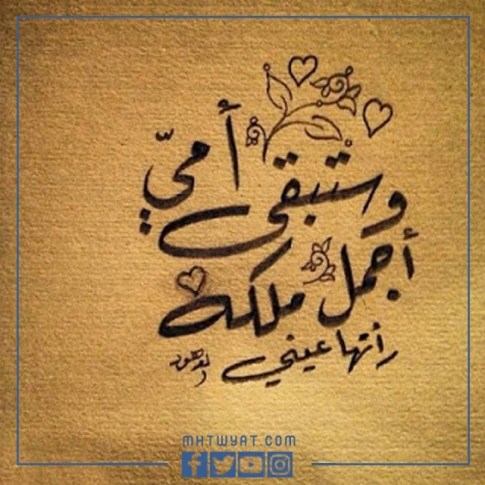 وستبقى أميّ
أجمل ملكة
رأتها عيني
MHTWYAT.COM